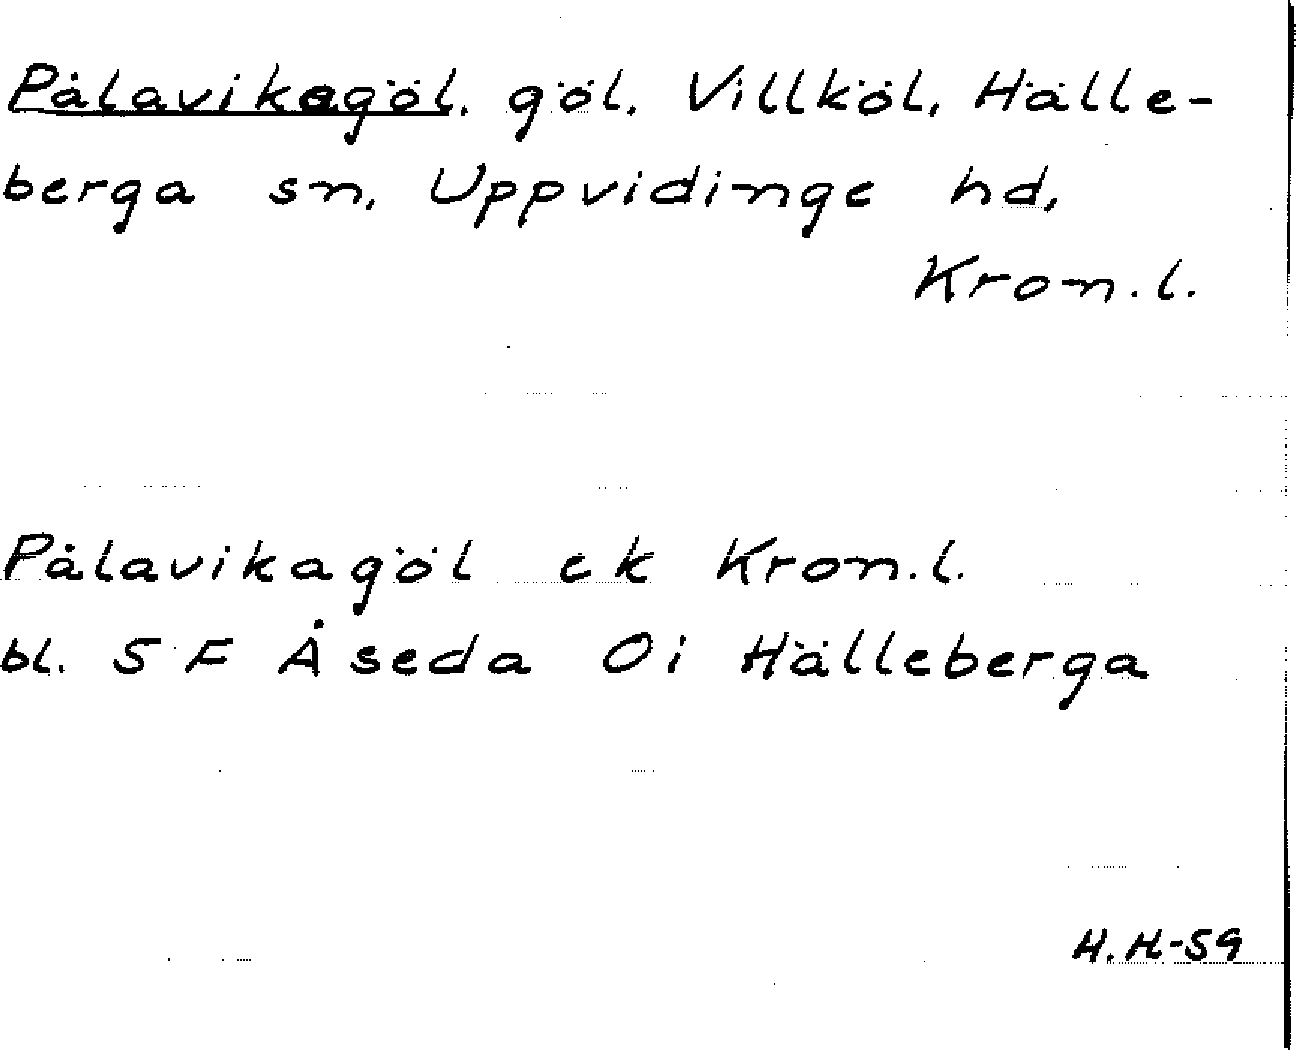 Pålavikagöl. göl. Villköl, Hälle-
berga sn, Uppvidinge hd,
Kron.l.
Pålavikagöl ek Kron.l.
bl. 5 F Åseda Oi Hälleberga
H.H-59